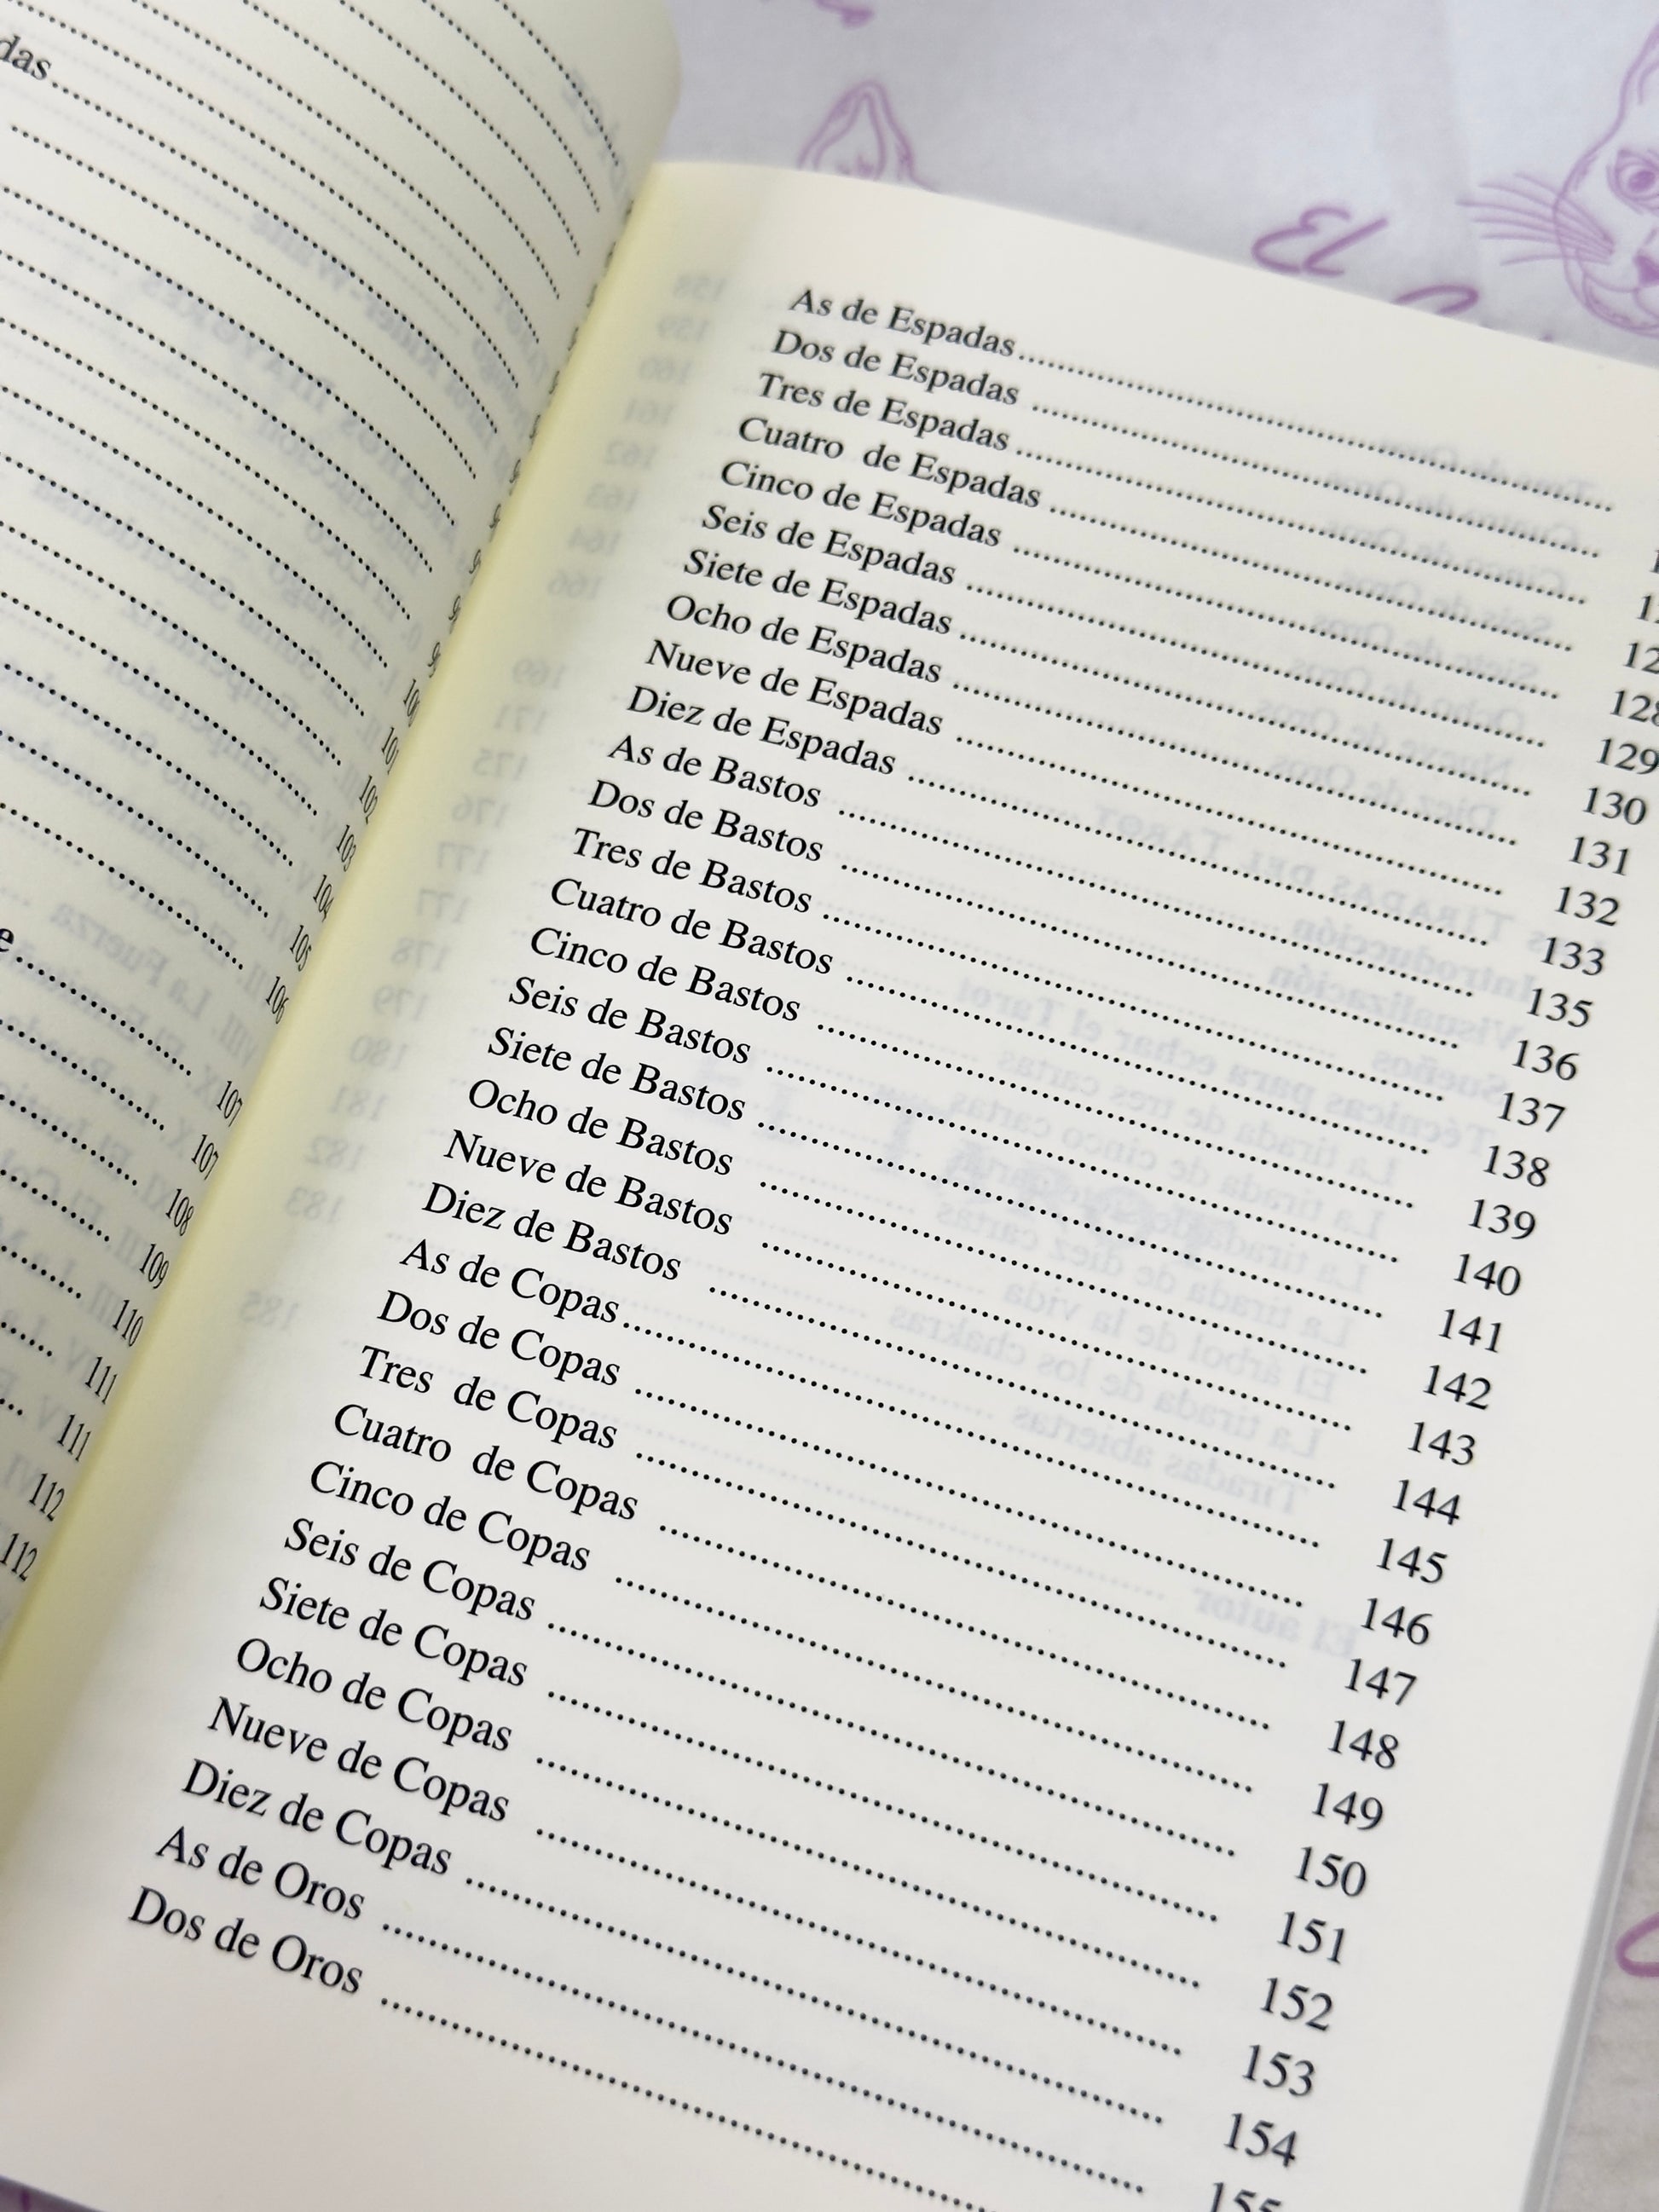 das
100
101
102
103
104
105
106
107
107
108
109
110
111
111
112
112
As de Espadas
Dos de Espadas
Tres de Espadas
Cuatro de Espadas
Cinco de Espadas ... 128
Seis de Espadas ... 129
Siete de Espadas ... 130
Ocho de Espadas ... 131
Nueve de Espadas ... 132
Diez de Espadas ... 133
As de Bastos ... 135
Dos de Bastos ... 136
Tres de Bastos ... 137
Cuatro de Bastos ... 138
Cinco de Bastos ... 139
Seis de Bastos ... 140
Siete de Bastos ... 141
Ocho de Bastos ... 142
Nueve de Bastos ... 143
Diez de Bastos ... 144
As de Copas ... 145
Dos de Copas ... 146
Tres de Copas ... 147
Cuatro de Copas ... 148
Cinco de Copas ... 149
Seis de Copas ... 150
Siete de Copas ... 151
Ocho de Copas ... 152
Nueve de Copas ... 153
Diez de Copas ... 154
As de Oros ... 155
Dos de Oros
El